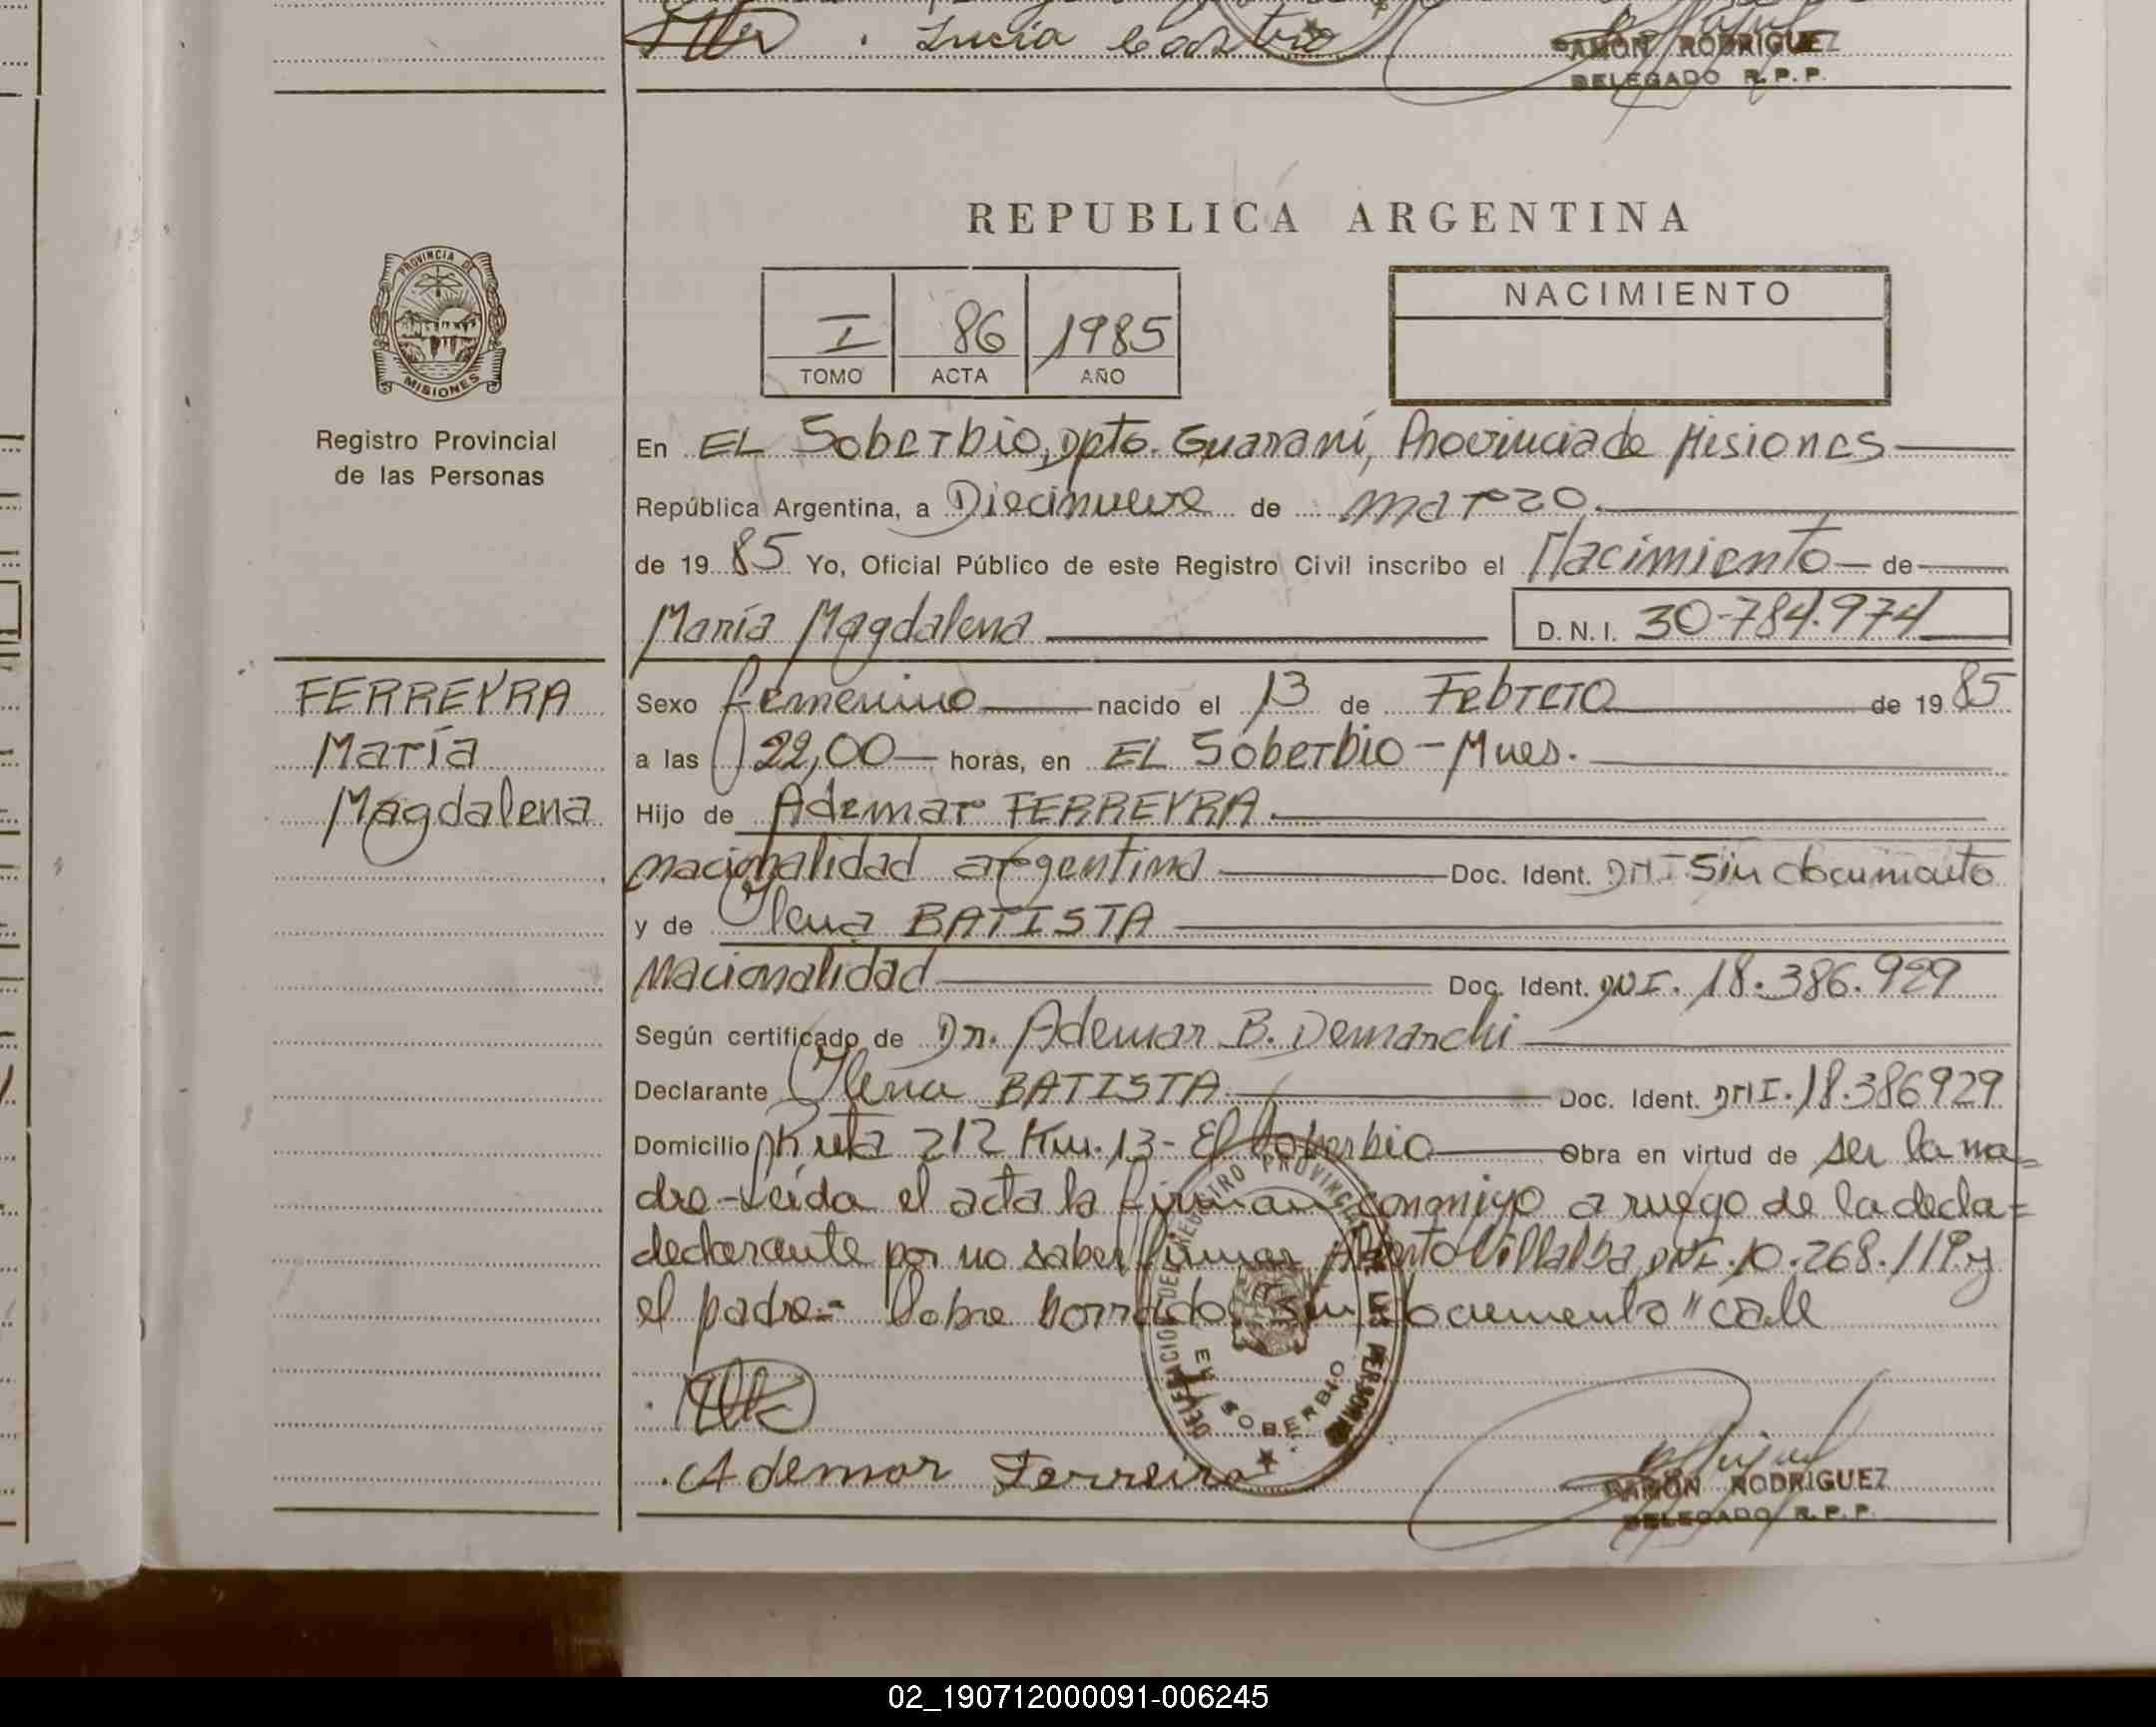 Lucía Castro
RAMÓN RODRIGUEZ
DELEGADO R.P.P.
REPUBLICA ARGENTINA
PROVINCIA DE
MISIONES
Registro Provincial
de las Personas
I 86 1985
TOMO ACTA AÑO
NACIMIENTO
En EL Soberbio, Dpto. Guaraní, Provincia de Misiones
República Argentina, a Diecinueve de marzo.
de 19 85 Yo, Oficial Público de este Registro Civil inscribo el Nacimiento de
María Magdalena D.N.I. 30.784.974
FERREYRA
María
Magdalena
Sexo femenino nacido el 13 de Febrero de 19 85
a las 22,00 horas, en EL Soberbio - Mnes.
Hijo de Ademar FERREYRA.
nacionalidad argentina Doc. Ident. DNI Sin documento
y de Ilena BATISTA
Nacionalidad Doc. Ident. DNI. 18.386.929
Según certificado de Dr. Ademar B. Demarchi
Declarante Ilena BATISTA Doc. Ident. DNI. 18.386929
Domicilio Ruta 212 Km. 13 - El Soberbio Obra en virtud de ser la ma=
dre - Leida el acta la firman conmigo a ruego de la decla=
declarante por no saber firmar Alberto Villalba, DNI. 10.268.119 y
el padre.= Sobre borrado "Sin documento" vale
DELEGACIO DEL REGISTRO PROVINCIAL DE LAS PERSONAS
EL SOBERBIO
Ademar Ferreira
RAMÓN RODRIGUEZ
DELEGADO R.P.P.
02_190712000091-006245